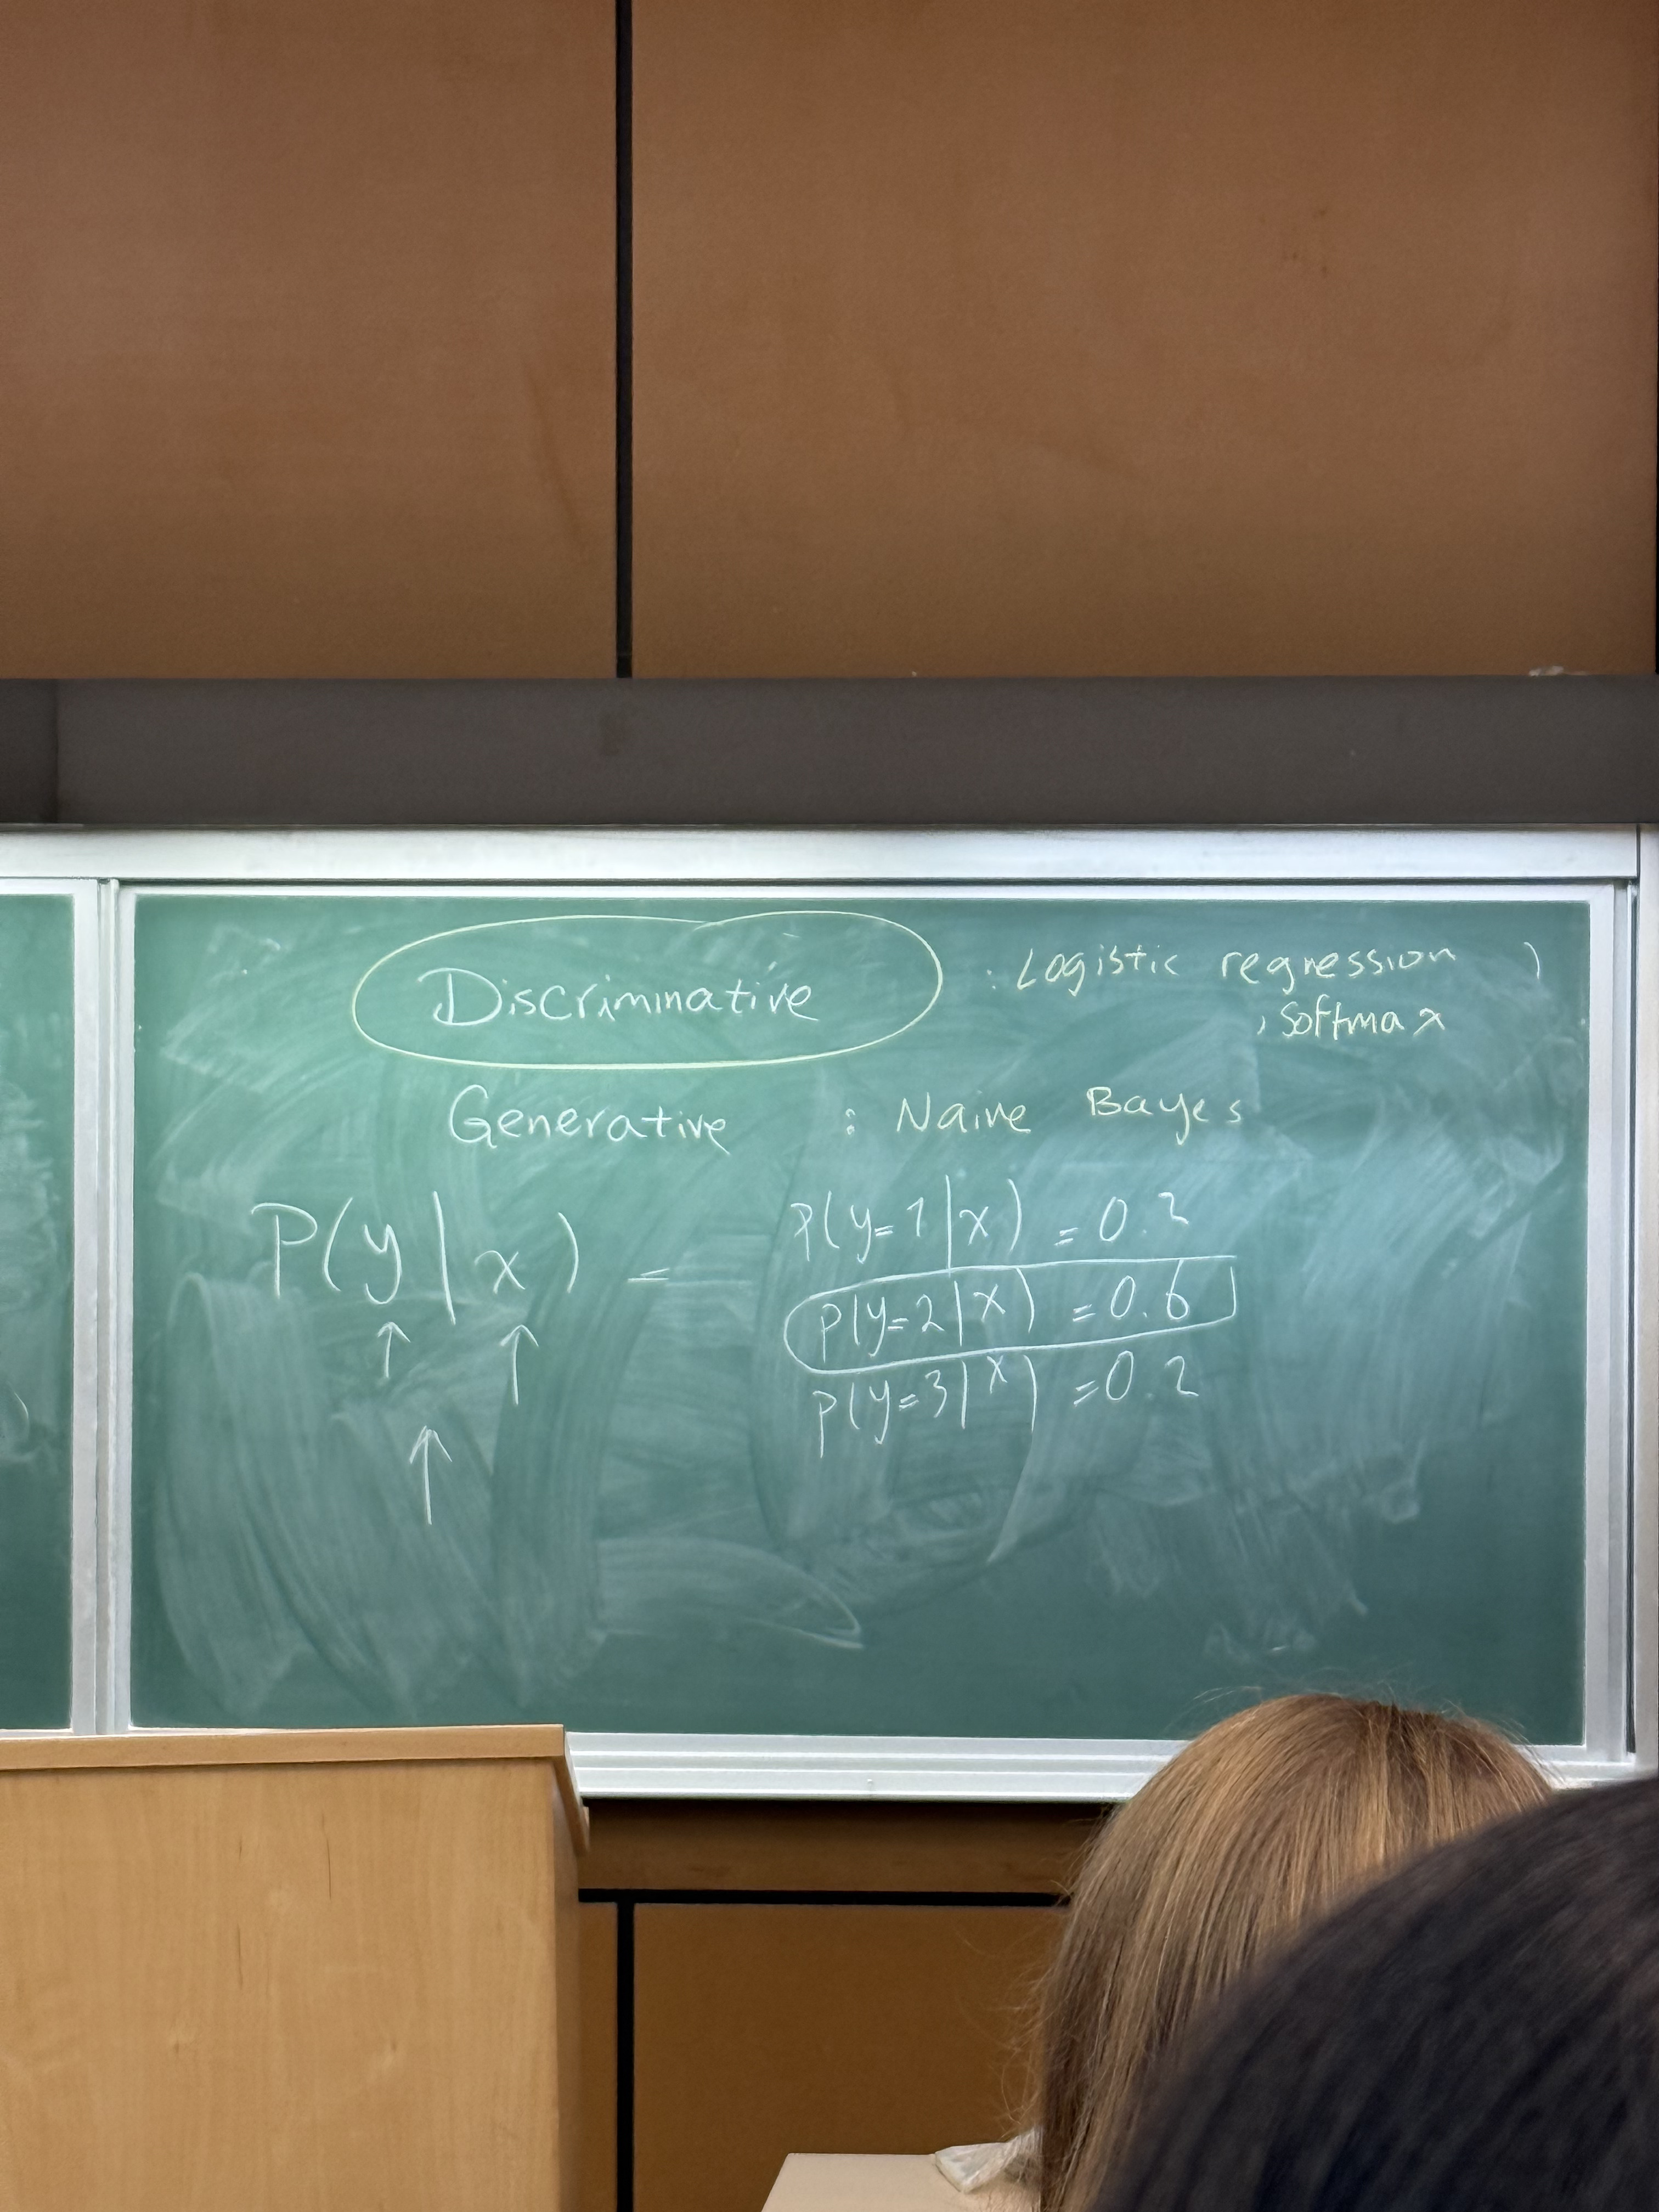 Discriminative : Logistic regression )
, Softmax
Generative : Naive Bayes
P(y|x) =
P(y=1|x) = 0.2
P(y=2|x) = 0.6
P(y=3|x) = 0.2